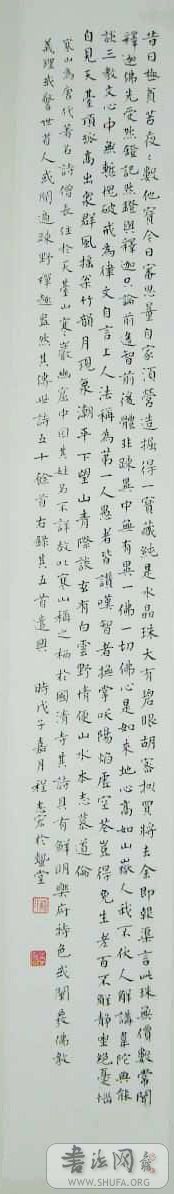 昔日極貧苦夜々數他寶今日審思量自家須營造掘得一寶藏純是水晶珠大有碧眼胡密擬買將去余即報渠言此珠無價數常聞
釋迦佛先受然燈記然燈與釋迦只論前後智前後體非殊異中無有異一佛一切佛心是如來地心高如山嶽人我不伏人解講韋陀典能
談三教文心中無慙愧破戒為律文自言上人法稱為第一人愚者皆讚嘆智者撫掌咲陽焰虛空花豈得免生老百不解靜坐絕憂惱
自見天臺頂孤高出眾群風搖松竹韻月現海潮平下望山青際談玄有白雲野情便山水本志慕道倫
寒山為唐代著名詩僧長住於天臺山寒巖幽窟中因其姓名不詳故以寒山稱之棲於國清寺其詩具有鮮明樂府特色或闡佛教
義理或警世省人或闡道疎野禪趣盎然其傳世詩五十餘首右錄其五首遣興 時戊子嘉月程志宏於堂
书法网
WWW.SHUFA.ORG